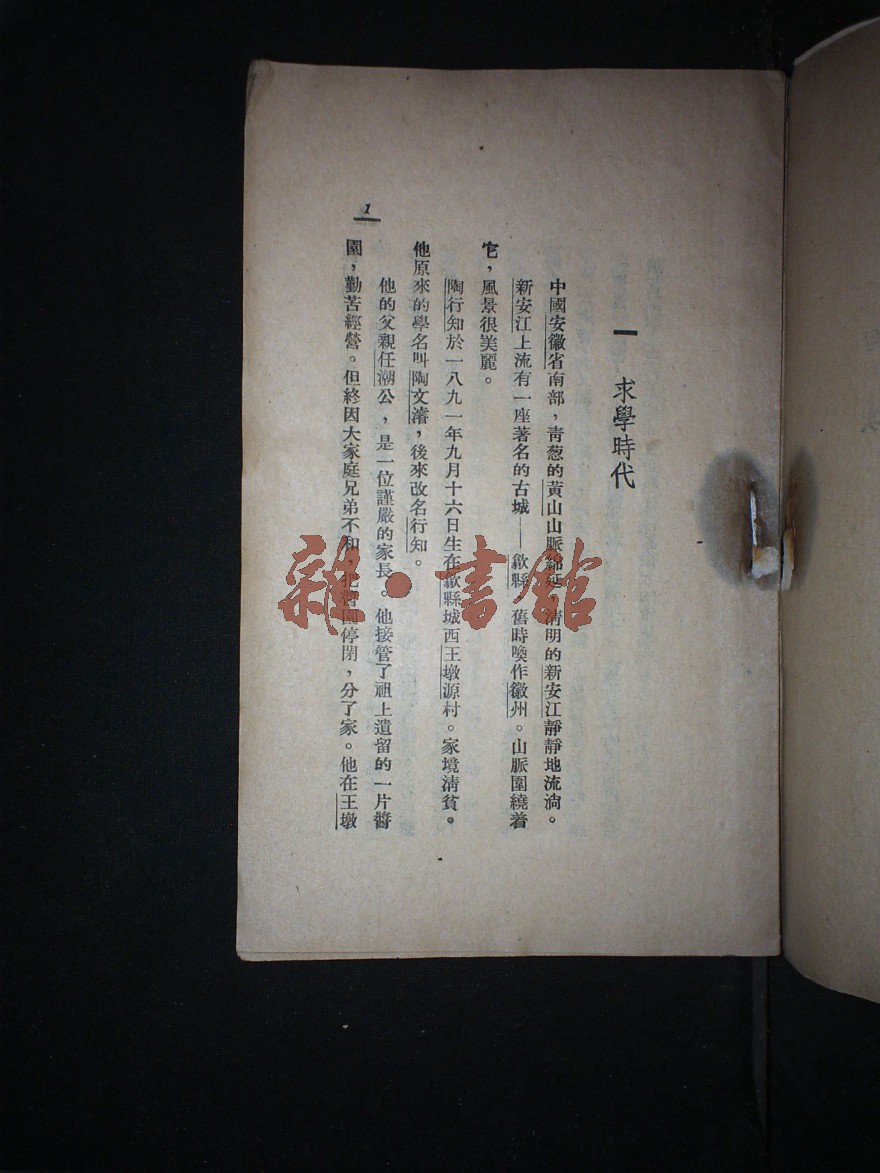 一 求學時代
中國安徽省南部，青葱的黃山山脈綿延 清明的新安江靜靜地流淌。
新安江上流有一座著名的古城——歙縣 舊時喚作徽州。山脈圍繞着
它，風景很美麗。
陶行知於一八九一年九月十六日生在歙縣城西王墩源村。家境清貧。
他原來的學名叫陶文濬，後來改名行知。
他的父親任潮公，是一位謹嚴的家長。他接管了祖上遺留的一片醬
園，勤苦經營。但終因大家庭兄弟不和，園停閉，分了家。他在王墩
1
雜·書館